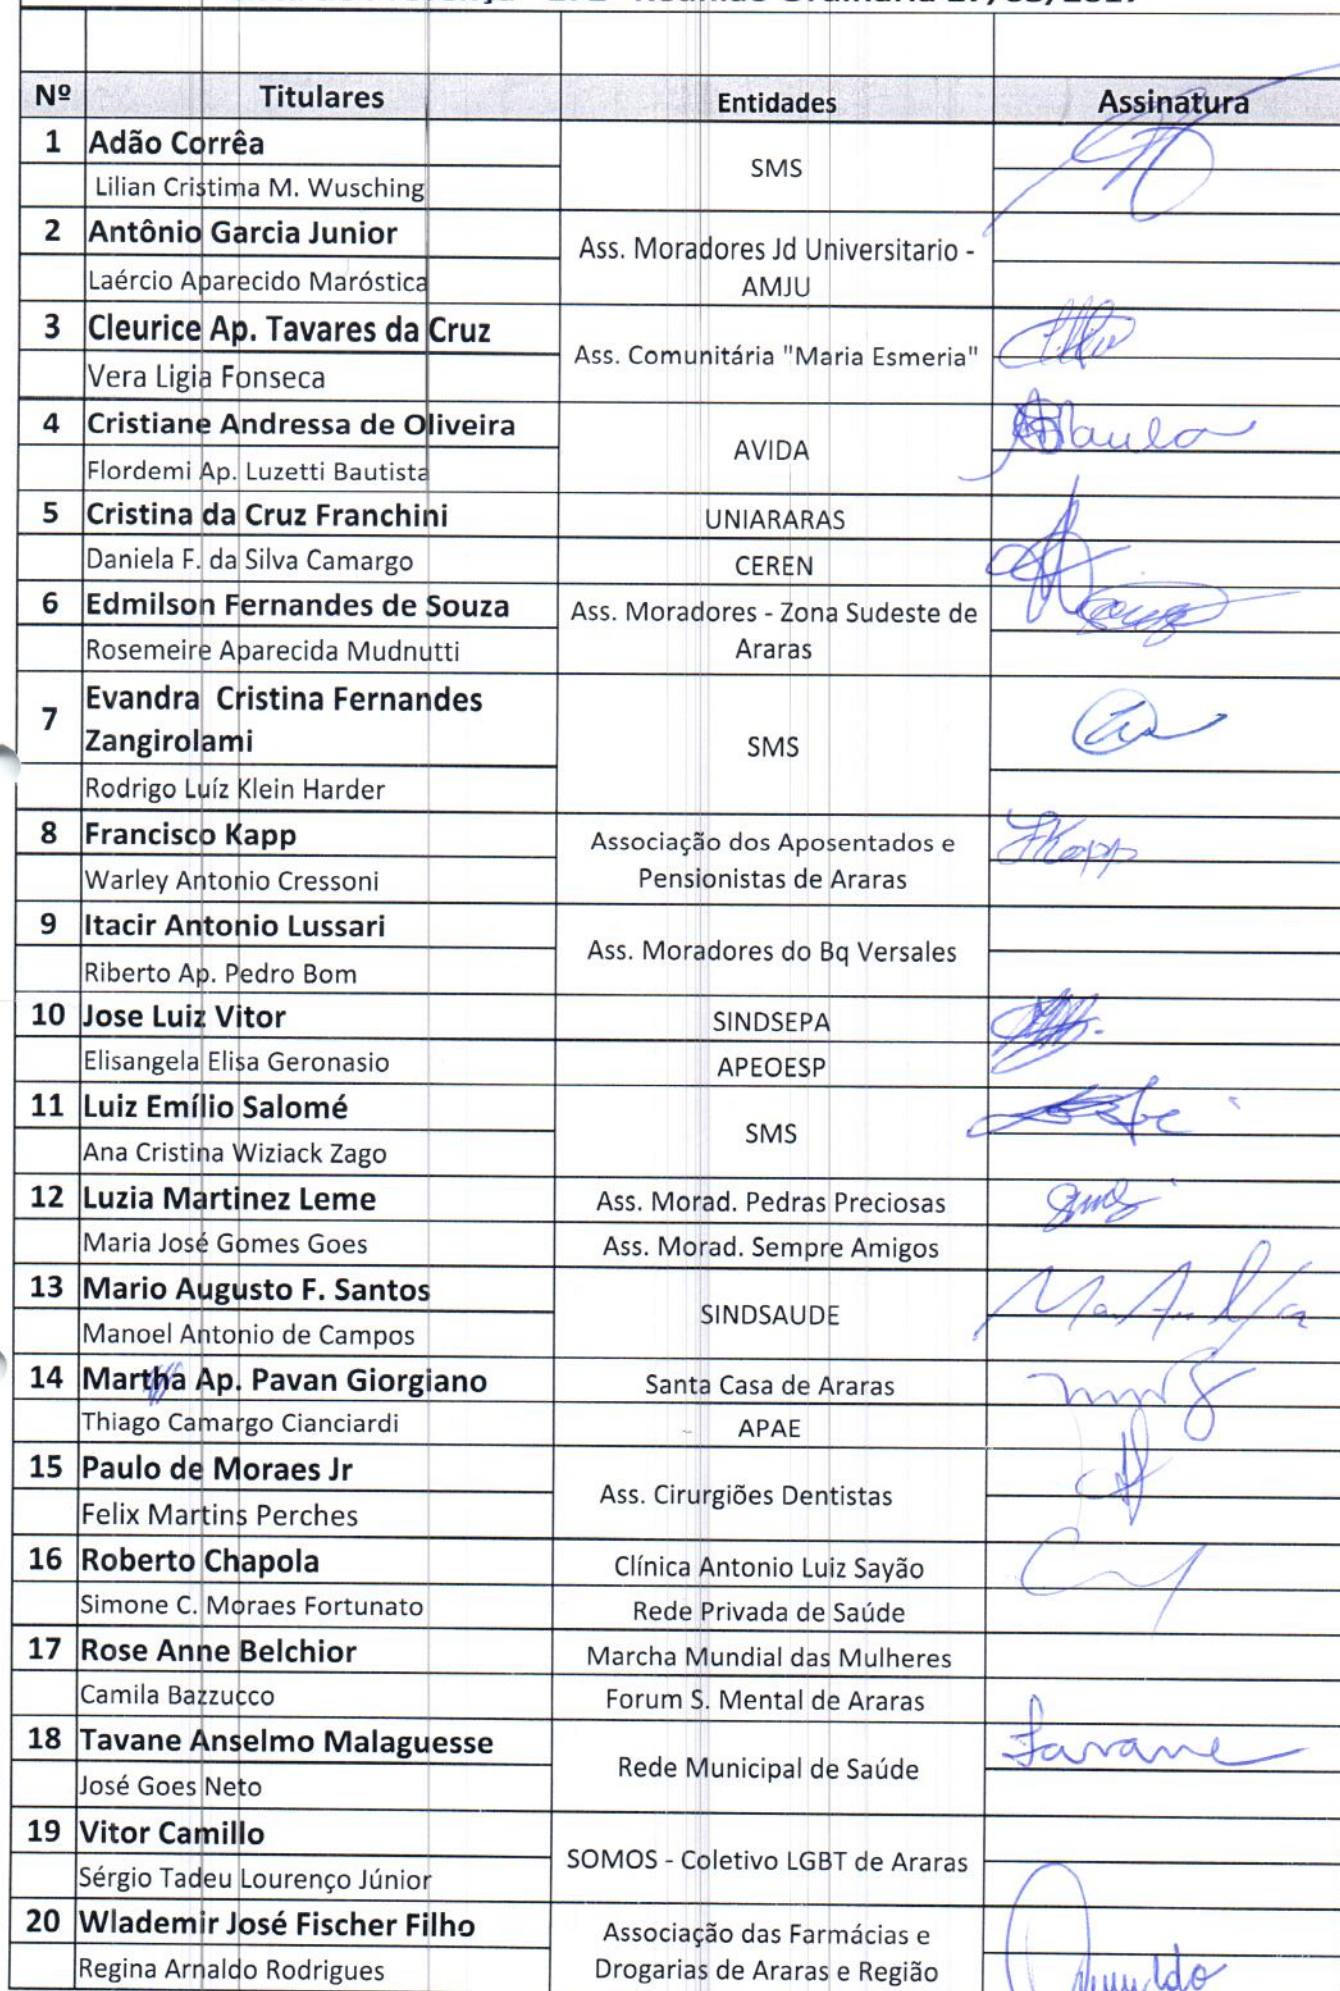 Reunião Ordinária 27/03/2017
Nº Titulares Entidades Assinatura
1 Adão Corrêa
SMS
Lilian Cristima M. Wusching
2 Antônio Garcia Junior
Ass. Moradores Jd Universitario -
AMJU
Laércio Aparecido Maróstica
3 Cleurice Ap. Tavares da Cruz
Ass. Comunitária "Maria Esmeria"
Vera Ligia Fonseca
4 Cristiane Andressa de Oliveira
AVIDA
Flordemi Ap. Luzetti Bautista
5 Cristina da Cruz Franchini UNIARARAS
Daniela F. da Silva Camargo CEREN
6 Edmilson Fernandes de Souza
Ass. Moradores - Zona Sudeste de
Araras
Rosemeire Aparecida Mudnutti
7 Evandra Cristina Fernandes
Zangirolami
SMS
Rodrigo Luíz Klein Harder
8 Francisco Kapp
Associação dos Aposentados e
Pensionistas de Araras
FKapp
Warley Antonio Cressoni
9 Itacir Antonio Lussari
Ass. Moradores do Bq Versales
Riberto Ap. Pedro Bom
10 Jose Luiz Vitor SINDSEPA
Elisangela Elisa Geronasio APEOESP
11 Luiz Emílio Salomé
SMS
Ana Cristina Wiziack Zago
12 Luzia Martinez Leme Ass. Morad. Pedras Preciosas
Maria José Gomes Goes Ass. Morad. Sempre Amigos
13 Mario Augusto F. Santos
SINDSAUDE
Manoel Antonio de Campos
14 Martha Ap. Pavan Giorgiano Santa Casa de Araras
Thiago Camargo Cianciardi APAE
15 Paulo de Moraes Jr
Ass. Cirurgiões Dentistas
Felix Martins Perches
16 Roberto Chapola Clínica Antonio Luiz Sayão
Simone C. Moraes Fortunato Rede Privada de Saúde
17 Rose Anne Belchior Marcha Mundial das Mulheres
Camila Bazzucco Forum S. Mental de Araras
18 Tavane Anselmo Malaguesse
Rede Municipal de Saúde
Tavane
José Goes Neto
19 Vitor Camillo
SOMOS - Coletivo LGBT de Araras
Sérgio Tadeu Lourenço Júnior
20 Wlademir José Fischer Filho
Associação das Farmácias e
Drogarias de Araras e Região
Regina Arnaldo Rodrigues